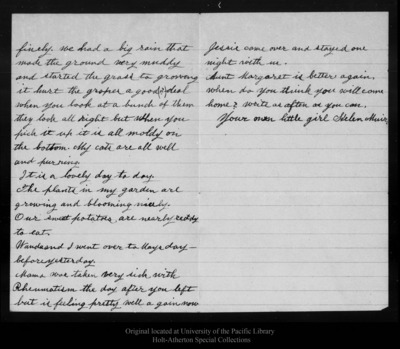 finely. We had a big rain that
made the ground very muddy
and started the grass to growing
it hurt the grapes a good(?) deal
when you look at a bunch of them
they look all right but when you
pick it up it is all moldy on
the bottom. My cats are all well
and purring.
It is a lovely day to day
The plants in my garden are
growing and blooming nicely.
Our sweet potatoes are nearly ready
to eat.
Wanda and I went over to Kays day—
before yesterday.
Mama was taken very sick with
Rheumatism the day after you left
but is feeling pretty well a gain now
Jessie came over and stayed one
night with us.
Aunt Margaret is better again.
when do you think you will come
home? write as often as you can.
Your own little girl Helen Muir
Original located at University of the Pacific Library
Holt-Atherton Special Collections